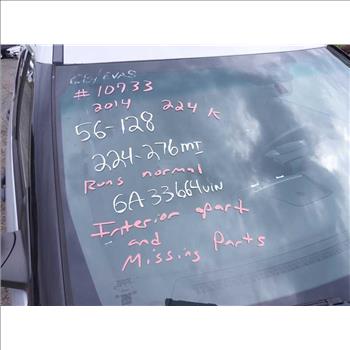 #10733
2014 224 K
56-128
224-276MI
Runs normal
6A33664VIN
Interior apart
and
Missing Parts